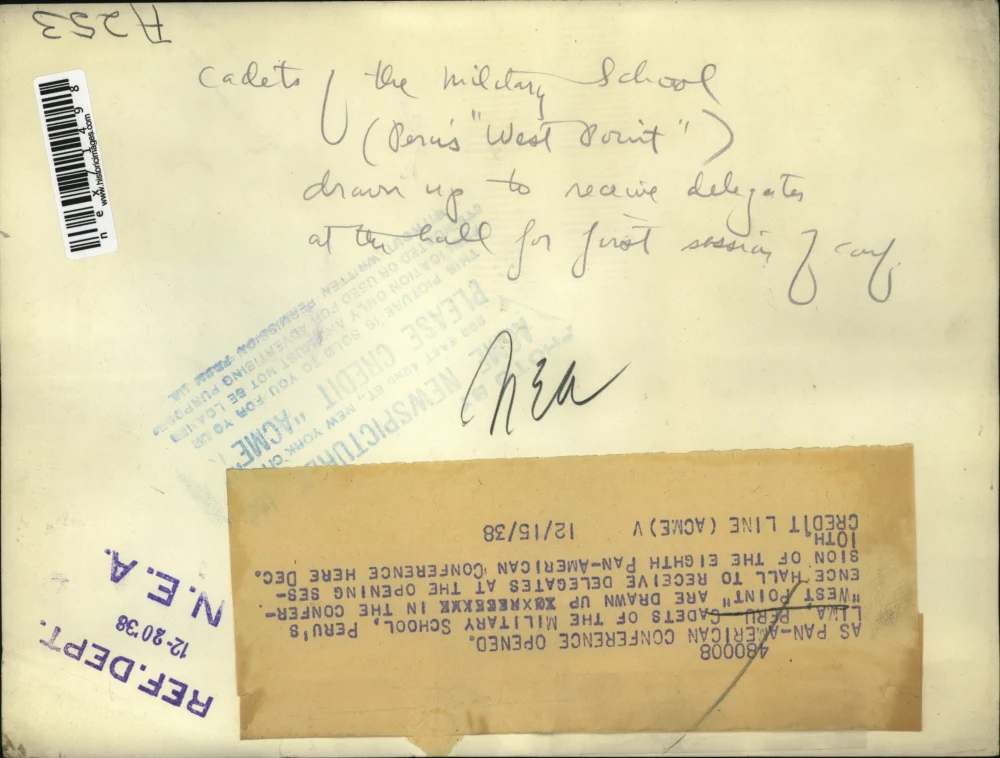 A253
cadets of the military School
(Peru's "West Point")
drawn up to receive delegates
at the hall for first session of conf.
nex71498
www.historicimages.com
NEA
PHOTO B
ACME NEWSPICTURE
220 EAST 42ND ST., NEW YORK CI
PLEASE CREDIT "ACME"
THIS PICTURE IS SOLD TO YOU FOR YOUR
ICATION ONLY AND MUST NOT BE LOANED
OR USED FOR ADVERTISING PURPOSES
WITHOUT WRITTEN PERMISSION FROM US
480008
AS PAN-AMERICAN CONFERENCE OPENED.
LIMA, PERU CADETS OF THE MILITARY SCHOOL, PERU'S
"WEST POINT" ARE DRAWN UP IN THE CONFER-
ENCE HALL TO RECEIVE DELEGATES AT THE OPENING SES-
SION OF THE EIGHTH PAN-AMERICAN CONFERENCE HERE DEC.
10TH.
CREDIT LINE (ACME) V 12/15/38
REF. DEPT.
12-20 38
N. E. A.